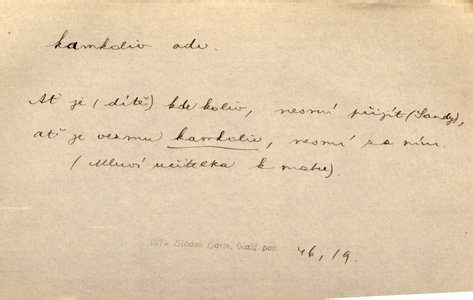 kamkoliv adv.
Ať je (dítě) kdekoliv, nesmí přijít (Sandy),
ať je vezmu kamkoliv, nesmí se mnu.
(Mluví učitelka k matce).
1874 Sládek Karle, Staří. pov. 46, 19.